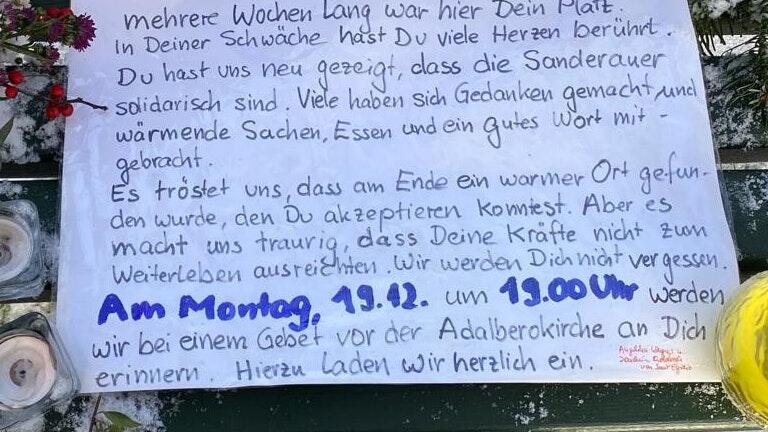 mehrere Wochen lang war hier Dein Platz.
In Deiner Schwäche hast Du viele Herzen berührt.
Du hast uns neu gezeigt, dass die Sanderauer
solidarisch sind. Viele haben sich Gedanken gemacht und
wärmende Sachen, Essen und ein gutes Wort mit-
gebracht.
Es tröstet uns, dass am Ende ein warmer Ort gefun-
den wurde, den Du akzeptieren konntest. Aber es
macht uns traurig, dass Deine Kräfte nicht zum
Weiterleben ausreichten. Wir werden Dich nicht vergessen.
Am Montag, 19.12. um 19.00 Uhr werden
wir bei einem Gebet vor der Adalberokirche an Dich
erinnern. Hierzu laden wir herzlich ein.